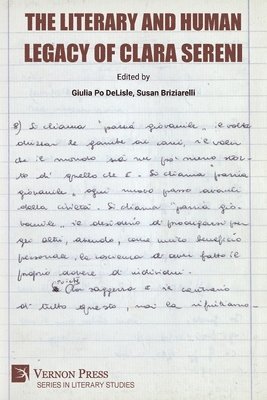 THE LITERARY AND HUMAN
LEGACY OF CLARA SERENI
Edited by
Giulia Po DeLisle, Susan Briziarelli
8) Si chiama "pazzia giovanile" e volte
le gambe ai cani, e voler
che il mondo sia un po' meno stor-
to di quello che è. Si chiama "pazzia
giovanile" ogni nuovo passo avanti
della civiltà. Si chiama "pazzia gio-
vanile" il desiderio di prodigarsi per
gli altri, avendo, come unico beneficio
personale, la coscienza di aver fatto il
proprio dovere di individui.
saggezza è il contrario
di tutto questo, noi la rifiutiamo
VERNON PRESS
SERIES IN LITERARY STUDIES